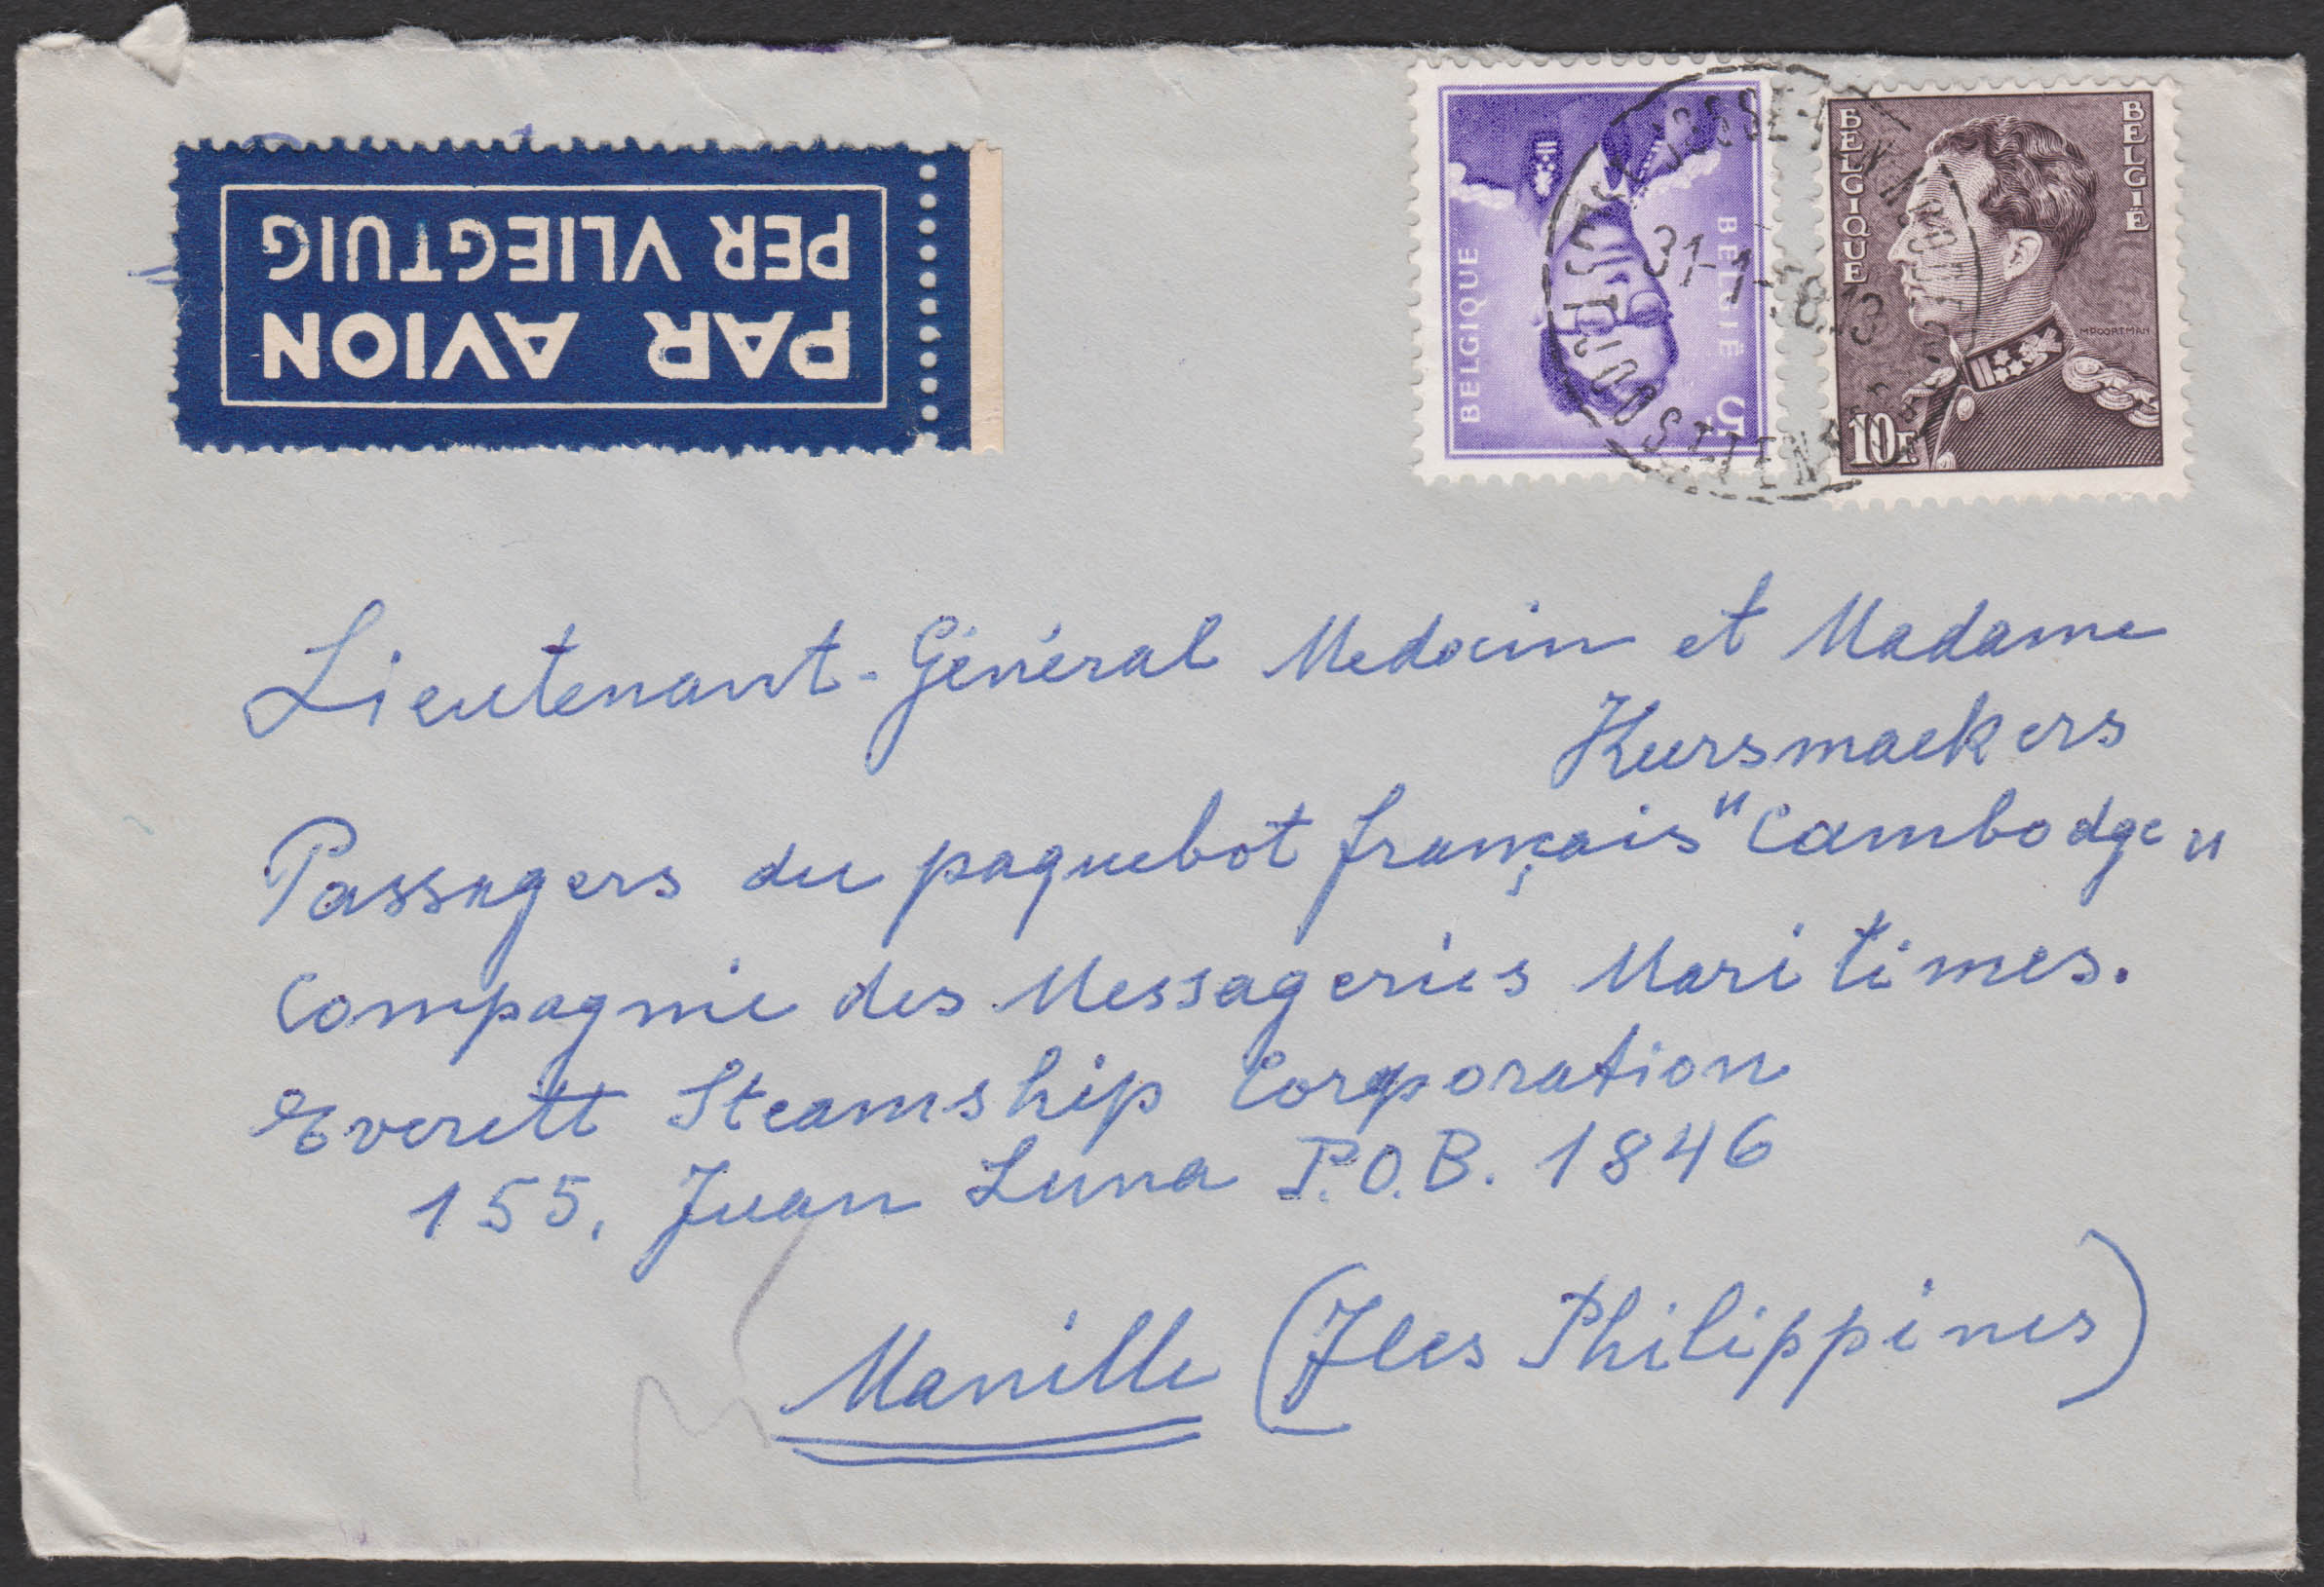 PAR AVION
PER VLIEGTUIG
BELGIQUE BELGIË 5F
BELGIQUE BELGIË
MPOORTMAN
10F
31-1-
Lieutenant-Général Medecin et Madame
Kursmaekers
Passagers du paquebot français "Cambodge"
Compagnie des Messageries Maritimes.
Everett Steamship Corporation
155, Juan Luna P.O.B. 1846
Manille (Iles Philippines)